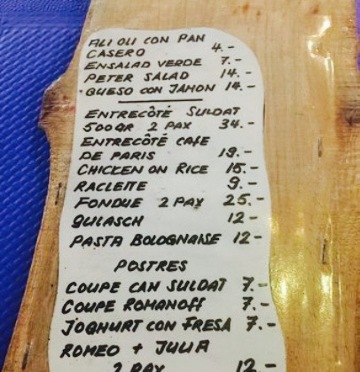 ALI OLI CON PAN
CASERO 4.-
ENSALAD VERDE 7.-
PETER SALAD 14.-
QUESO CON JAMON 14.-
ENTRECÔTÉ SULDAT
500GR 2 PAX 34.-
ENTRECÔTÉ CAFE
DE PARIS 19.-
CHICKEN ON RICE 15.-
RACLETTE 9.-
FONDUE 2 PAX 25.-
GULASCH 12-
PASTA BOLOGNAISE 12-
POSTRES
COUPE CAN SULDAT 7.-
COUPE ROMANOFF 7.-
JOGHURT CON FRESA 7.-
ROMEO + JULIA
2 PAX 12.-